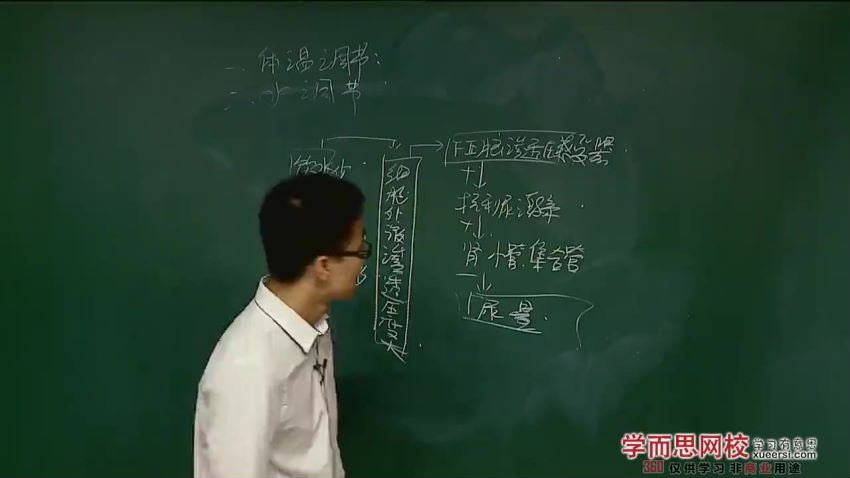 一、体温调节：
二、水调节
饮水少
细胞外液渗透压变大
下丘脑渗透压感受器
+
抗利尿激素
+
肾小管.集合管
—
尿量
学而思网校
学习有意思
xueersi.com
360 仅供学习 非商业用途